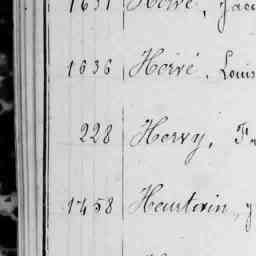 1631 Hervé, Jacq
1636 Hervé, Louis
228 Hervy, Fr
1458 Heurtevin,